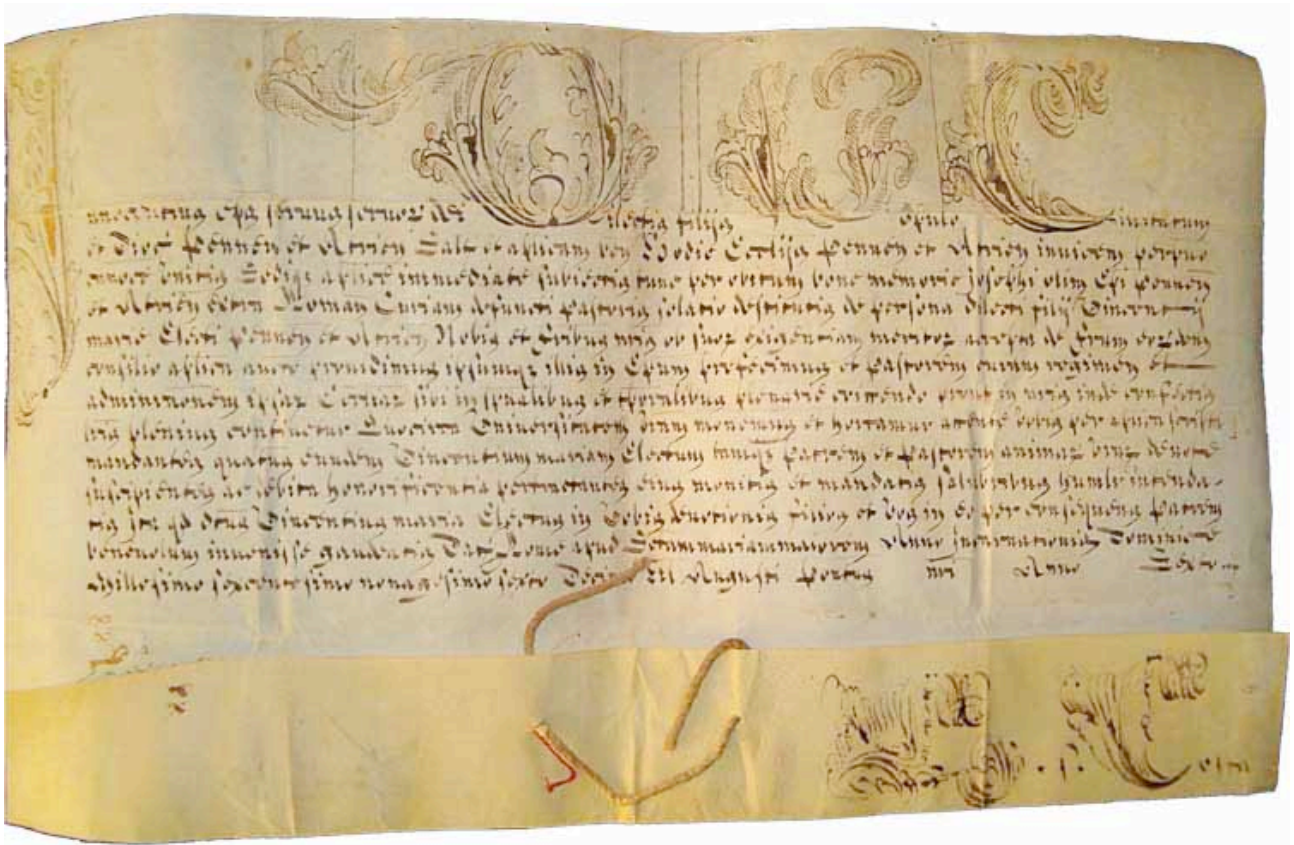 nnocentius eps servus servoz dei ilectis filijs opulo ivitatum
et Dioc Pennen et Atrien Salt et aplicam ben Hodie Ecclijs Pennen et Atrien invicem perpuo
unitis Sediqz aplice immediate subiectis tunc per obitum bone memorie Josephi olim Epi Pennen
et Atrien extra Roman Curiam defuncti pastoris solatio destitutis de persona dilecti filij Vincentij
marie Electi Pennen et Atrien Nobis et fribus nris ob suoz exigentiam meritoz accepta de frum eozdem
consilio aplica aucte providimus ipsumqz illis in Epum prefecimus et pastorem curam regimen et
administronem ipsaz Ecclíaz sibi in spualibus et tporalibus plenarie comittendo prout in nris inde confectis
lris plenius continetur Quocirca Universitatem vram monemus et hortamur attente vobis per aplica scripta
mandantes quatus eundem Vincentium mariam Electum tanqz Patrem et Pastorem animaz vraz devote
suscipientes ac debita honorificentia pertractantes eius monitis et mandatis salubribus humlr intenda-
tis Ita qd dcus Vincentius maria Electus in Vobis devotionis filios et vos in eo per consequens Patrem
benevolum invenisse gaudeatis Dat Rome apud Sctam mariam maiorem Anno Incarnationis Dominice
Millesimo sexcentesimo nonagesimo sexto Augusti Pontus nri Anno Sexto